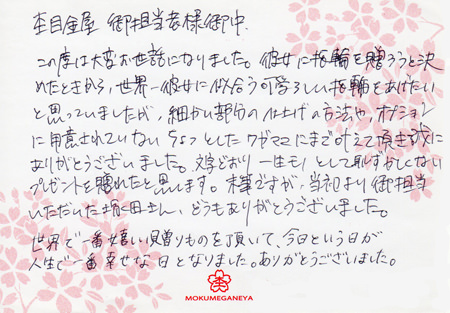 杢目金屋 御担当者様御中.
この度は大変お世話になりました。彼女に指輪を贈ろうと決
めたときから、世界一彼女に似合う可愛らしい指輪をあげたい
と思っていましたが、細かい部分の仕上げの方法や、オプション
に用意されていない ちょっとした ワガママにまで応えて頂き誠に
ありがとうございました。文字どおり一生モノとして恥ずかしくない
プレゼントを贈れたと思います。末筆ですが、当初より御担当
いただいた坂田さん、どうもありがとうございました。
世界で一番嬉しい贈りものを頂いて、今日という日が
人生で一番幸せな日となりました。ありがとうございました。
MOKUMEGANEYA